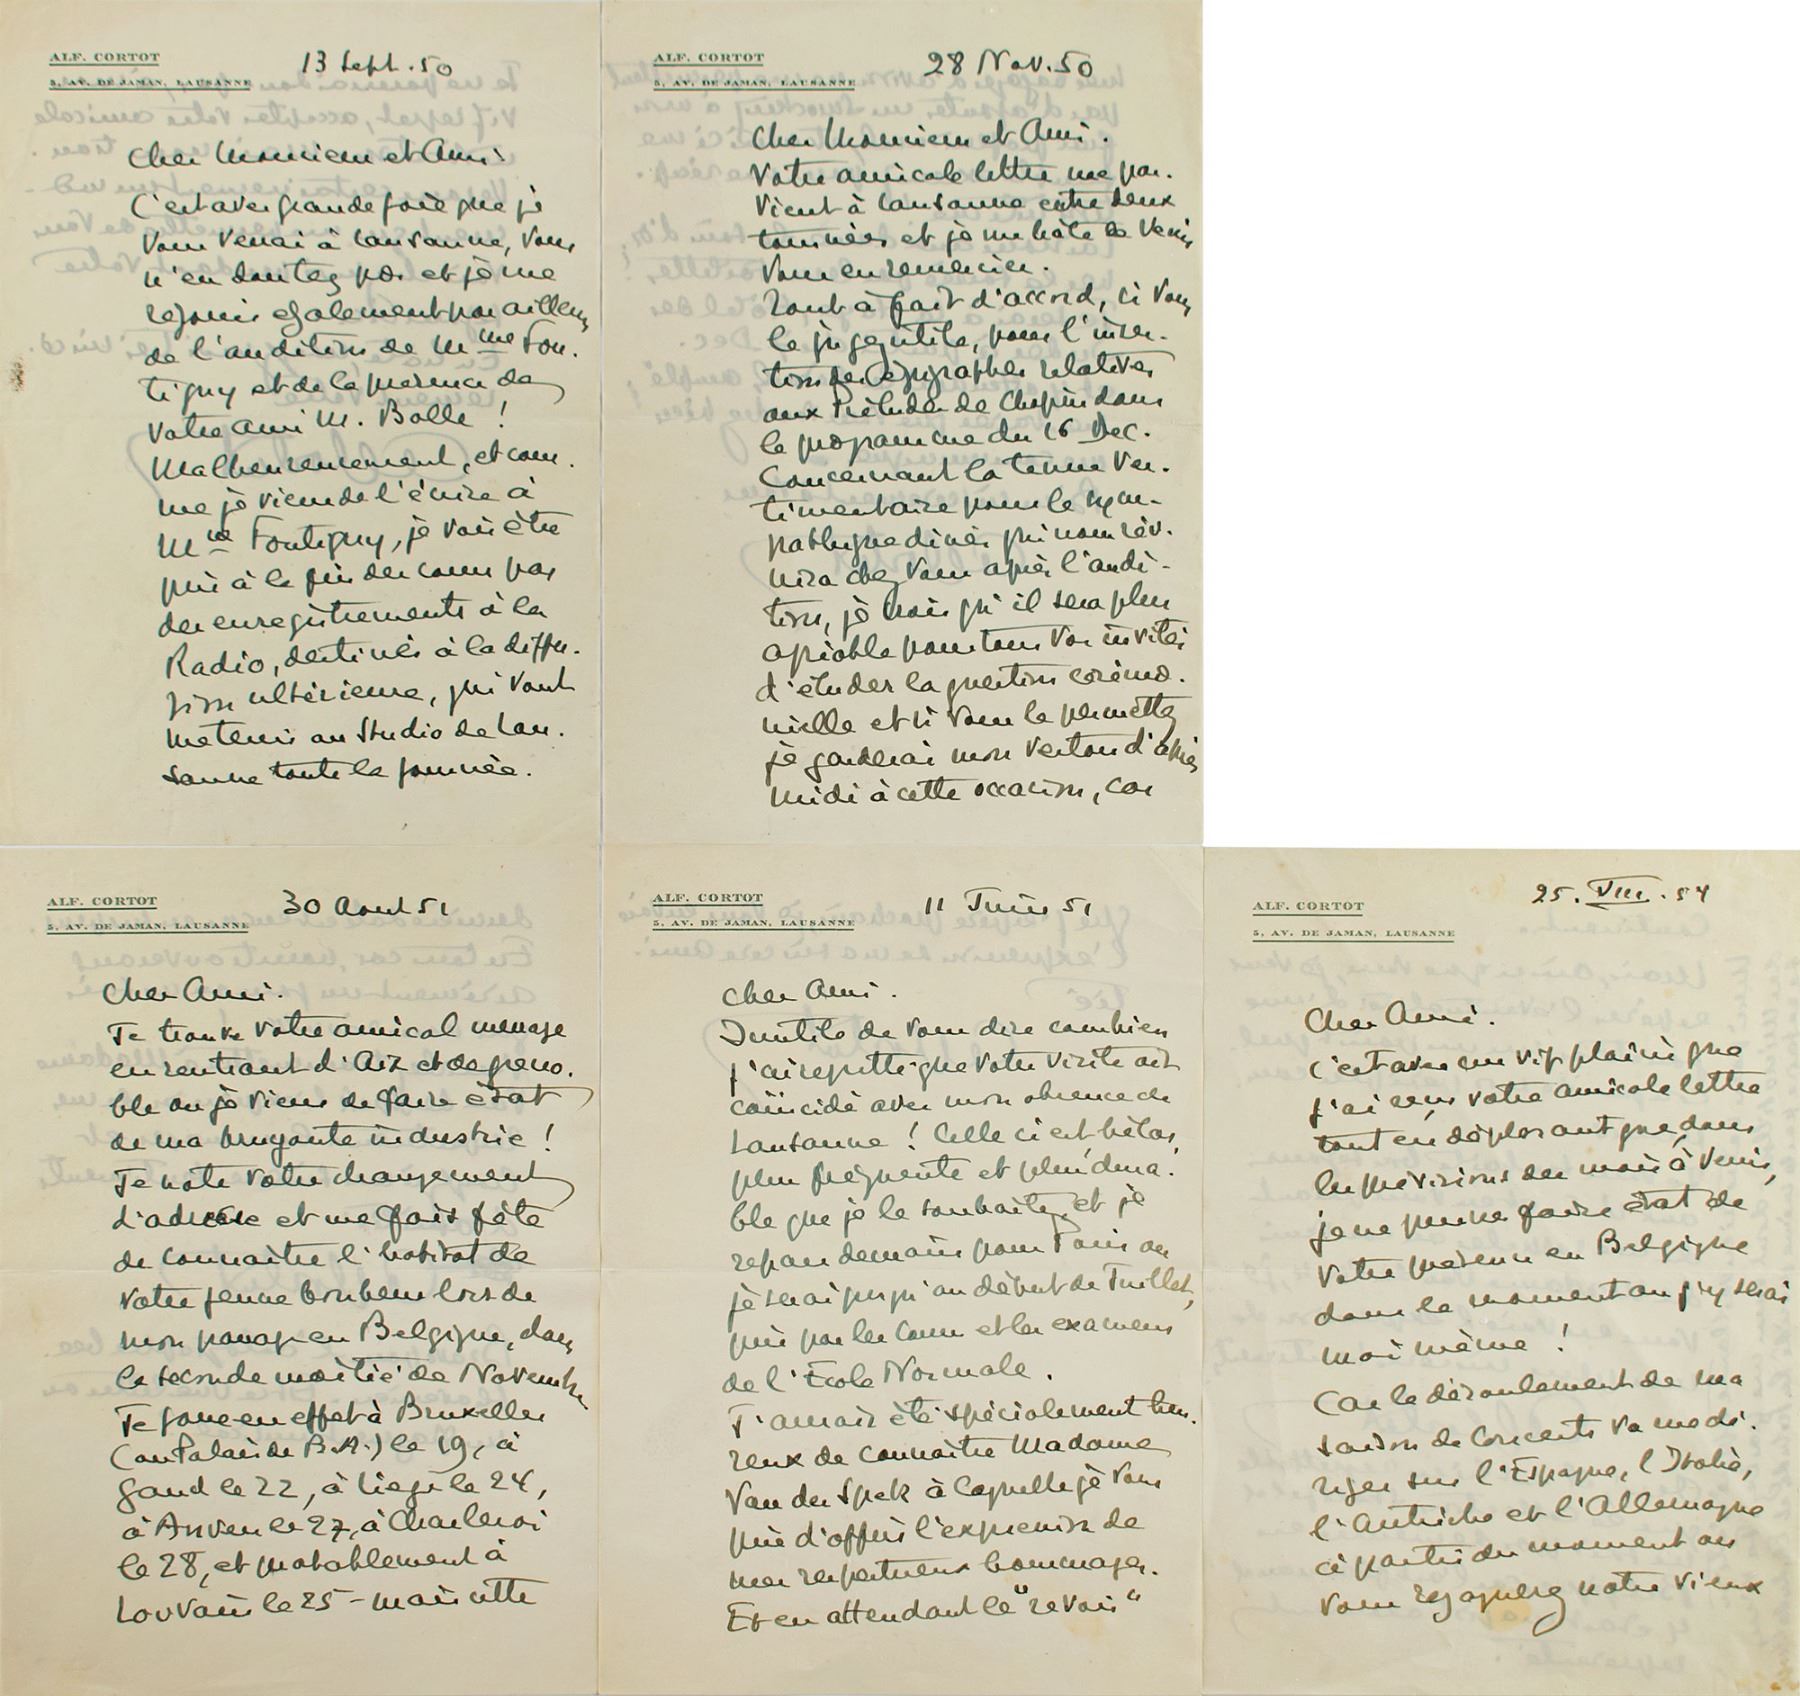 ALF. CORTOT
5, AV. DE JAMAN, LAUSANNE
13 Sept. 50
Cher Monsieur et Ami.
C'est avec grande joie que je
vous verrai à Lausanne, vous
n'en doutez pas et je me
rejouis egalement par ailleurs
de l'audition de Mme Fon-
tigny et de la présence de
votre ami M. Bolle !
Malheureusement, et com-
me je viens de l'écrire à
Mme Fontigny, je vais être
pris à la fin des cours par
des enregistrements à la
Radio, destinés à la diffu-
sion ultérieure, qui vont
me tenir au Studio de Lau-
sanne toute la journée.
ALF. CORTOT
5, AV. DE JAMAN, LAUSANNE
28 Nov. 50
Cher Monsieur et Ami.
Votre amicale lettre me par-
vient à Lausanne entre deux
tournées et je me hâte de venir
vous en remercier.
Tout à fait d'accord, si vous
le jugez utile, pour l'inser-
tion des épigraphes relatives
aux Préludes de Chopin dans
le programme du 16 Dec.
Concernant la tenue ves-
timentaire pour le sym-
pathique dîner qui nous réu-
nira chez vous après l'audi-
tion, je crois qu'il sera plus
agréable pour tous vos invités
d'éluder la question cérémo-
nielle et si vous le permettez
je garderai mon veston d'après
midi à cette occasion, car
ALF. CORTOT
5, AV. DE JAMAN, LAUSANNE
30 Aout 51
Cher Ami.
Je trouve votre amical message
en rentrant d'Aix et de Greno-
ble ou je viens de faire état
de ma bruyante industrie !
Je note votre changement
d'adresse et me fais fête
de connaître l'habitat de
votre jeune bonheur lors de
mon passage en Belgique, dans
la seconde moitié de Novembre
Je joue en effet à Bruxelles
(au Palais de B.A.) le 19, à
Gand le 22, à Liege le 24,
à Anvers le 27, à Charleroi
le 28, et probablement à
Louvain le 25 - mais cette
ALF. CORTOT
5, AV. DE JAMAN, LAUSANNE
11 Juin 51
Cher Ami.
Inutile de vous dire combien
j'ai regretté que votre visite ait
coïncidé avec mon absence de
Lausanne ! Celle ci est hélas,
plus fréquente et plus dura-
ble que je le souhaite, et je
repars demain pour Paris ou
je serai jusqu'au début de Juillet,
pris par les cours et les examens
de l'École Normale.
J'aurais été spécialement heu-
reux de connaître Madame
Van der Spek à laquelle je vous
prie d'offrir l'expression de
mes respectueux hommages.
Et en attendant le "revoir"
ALF. CORTOT
5, AV. DE JAMAN, LAUSANNE
25. VIII. 54
Cher Ami.
C'est avec un vif plaisir que
j'ai reçu votre amicale lettre
tout en déplorant que, dans
les prévisions des mois à venir,
je ne puisse faire état de
votre présence en Belgique
dans le moment ou j'y serai
moi même !
Car le déroulement de ma
saison de Concerts va me di-
riger sur l'Espagne, l'Italie,
l'Autriche et l'Allemagne
à partir du moment ou
vous regagnerez notre vieux